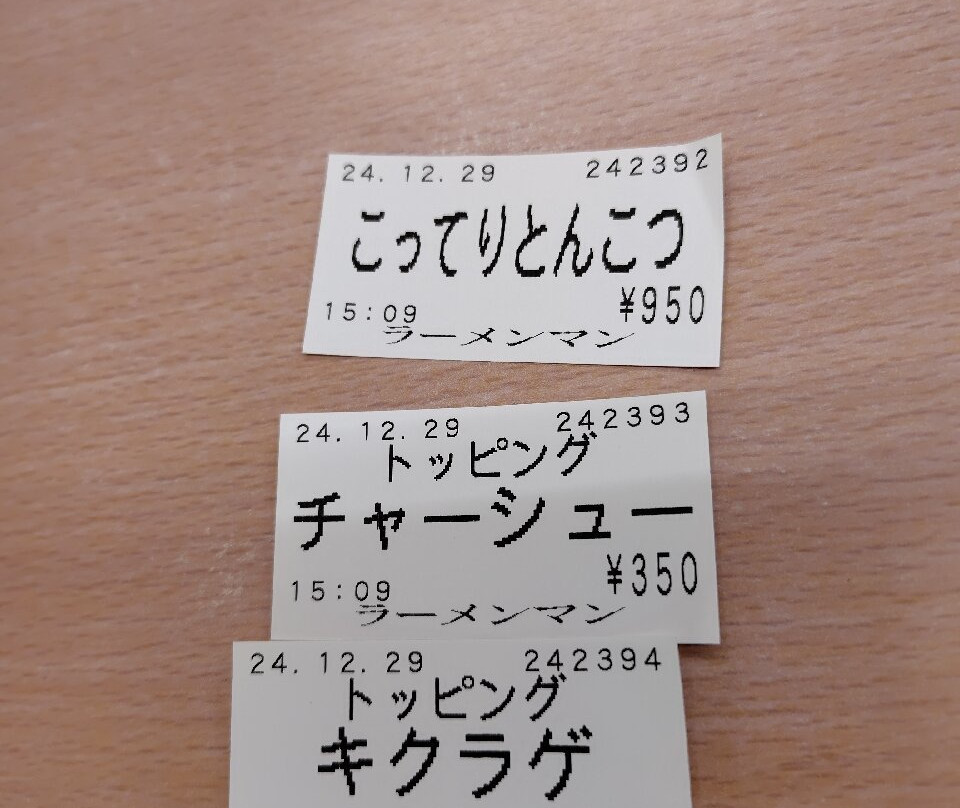 24.12.29 242392
こってりとんこつ
¥950
15:09
ラーメンマン
24.12.29 242393
トッピング
チャーシュー
¥350
15:09
ラーメンマン
24.12.29 242394
トッピング
キクラゲ